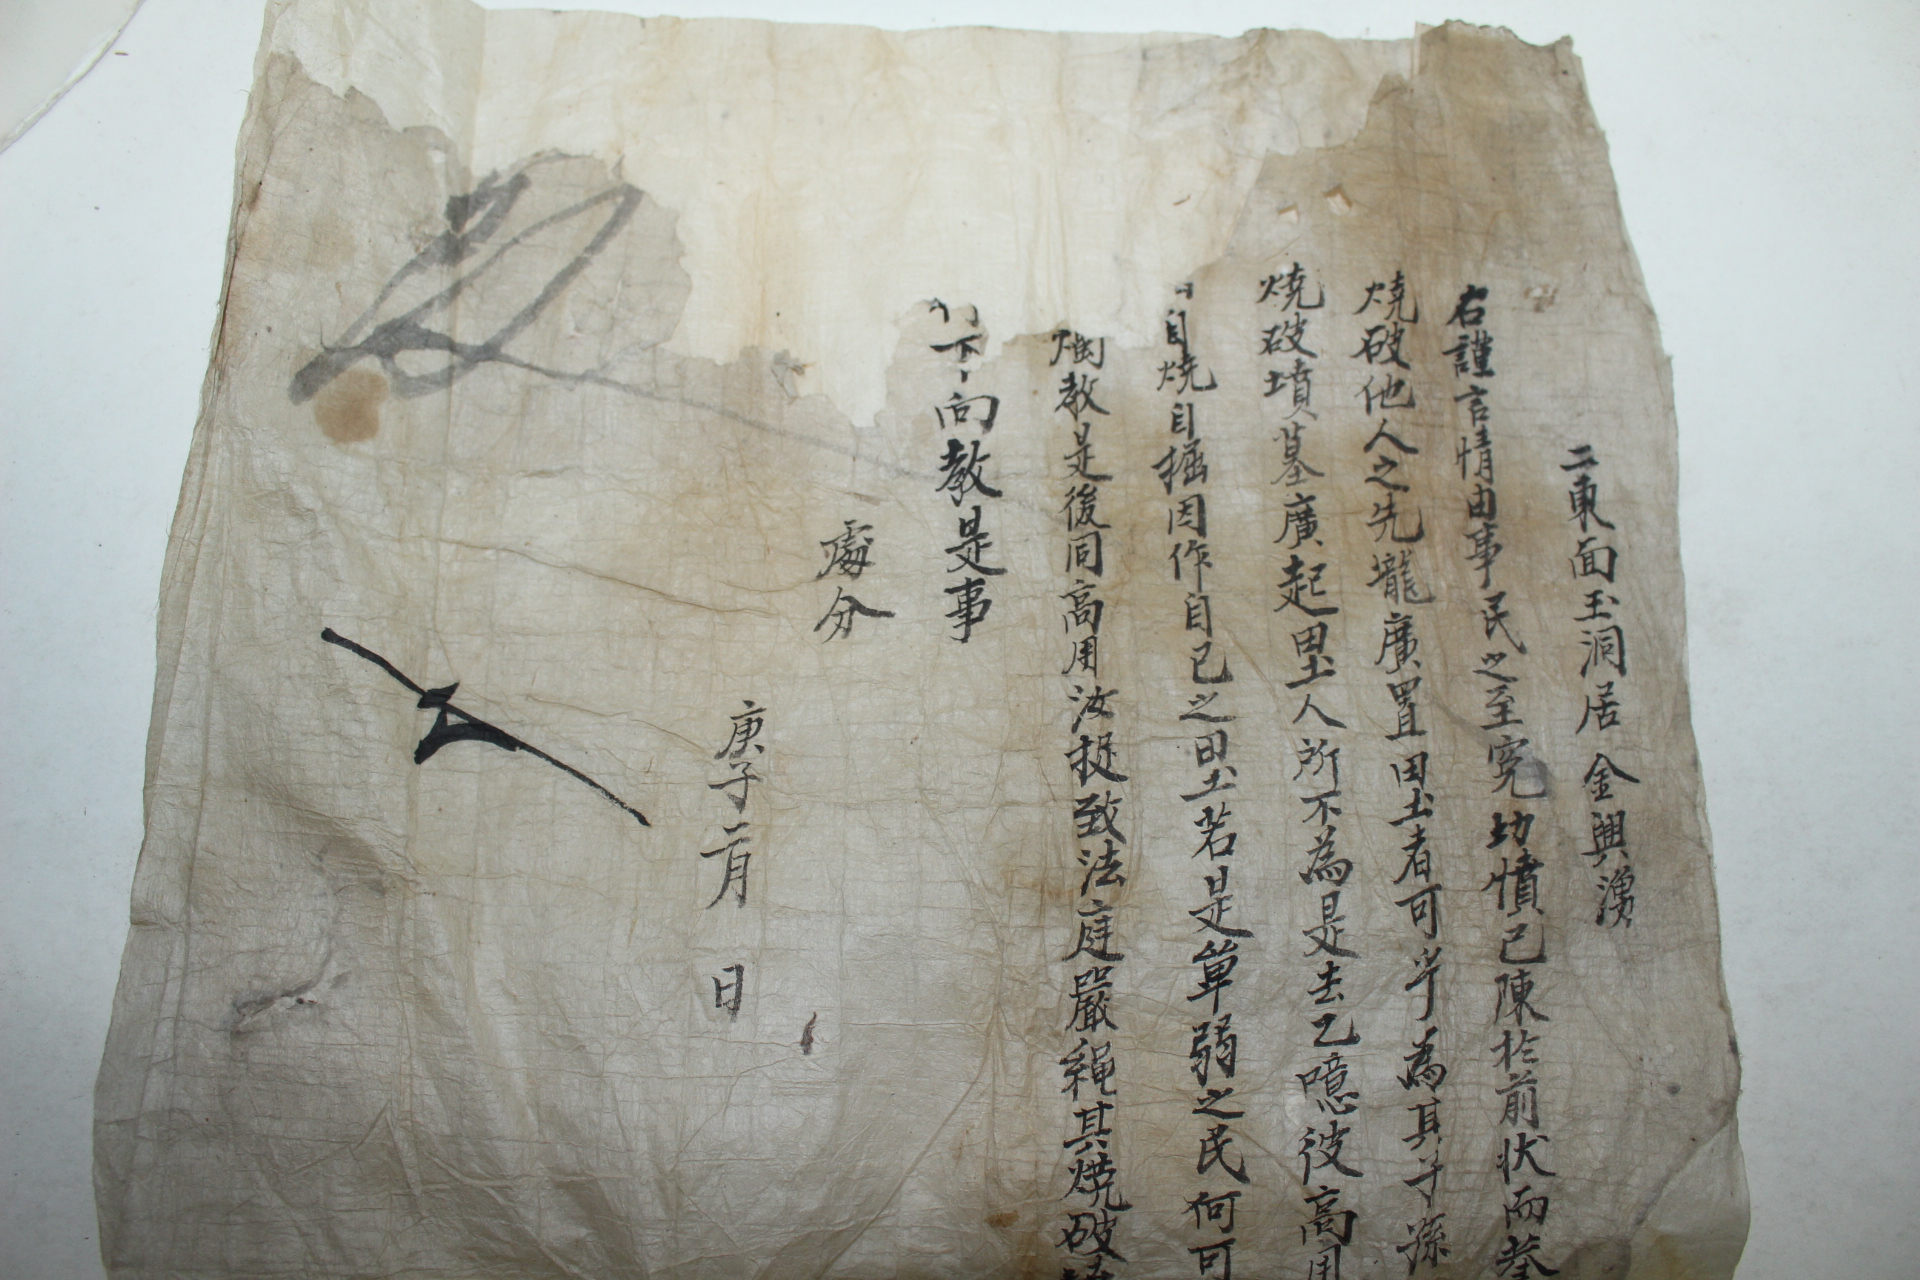 二東面玉洞居 金興湧
右謹言情由事民之至寃切憤已陳於前狀而墓
燒破他人之先壠廣置田土者可乎為其子孫
燒破墳墓廣起墾人所不為是去乙噫彼高用
自燒自掘因作自己之田土若是單弱之民何可
燭教是後同高用汝捉致法庭嚴繩其燒破
行下向教是事
處分
庚子二月 日